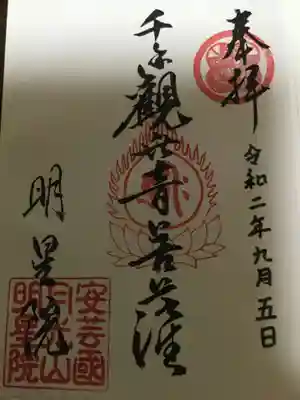 奉拝
令和二年九月五日
千手觀世音菩薩
明星院
安芸國
月光山
明星院